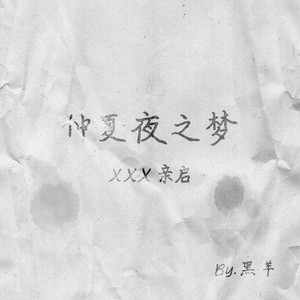 仲夏夜之梦
XXX 亲启
By.黑羊